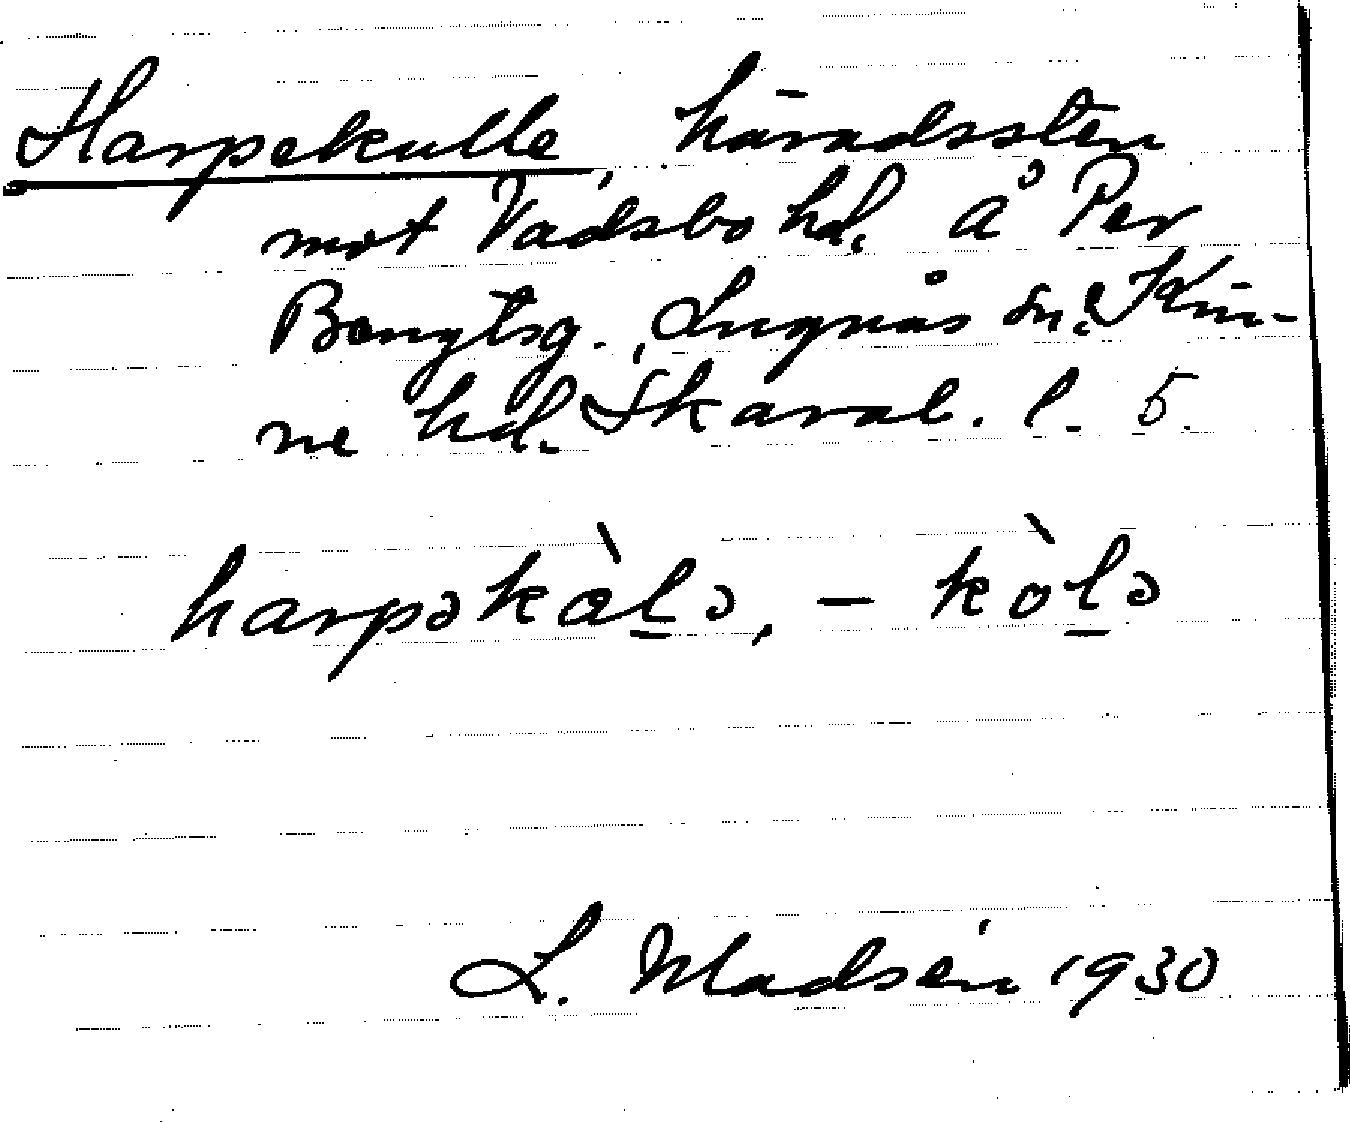 Harpekulle, häradssten
mot Vadsbo hd. å Per
Bengtsg., Lugnås sn, Kin-
ne hd. Skarab. l. 5.
harpəkàl̠ə, - kòl̠ə
L. Madsén 1930